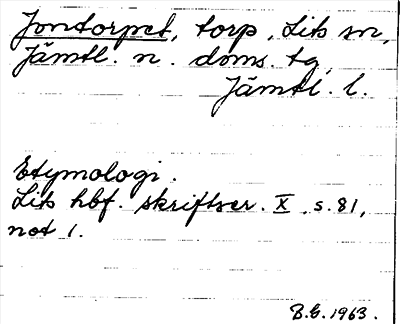 Jontorpet, torp, Lits sn,
Jämtl. n. doms. tg,
Jämtl. l.
Etymologi.
Lits hbf. skriftser. X, s. 81,
not 1.
B.E. 1963.